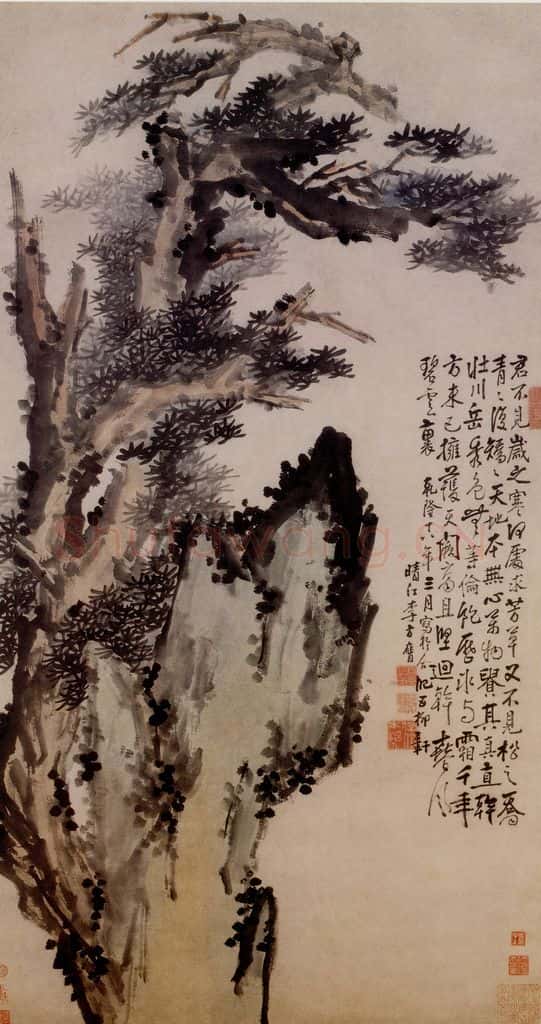 君不見歲之寒何處求芳草又不見松之喬
青々復矯々天地本無心萬物貴其真直幹
壯川岳秀色無等倫飽歷冰与霜千年
方未已擁護天闕高且堅迴斡春風
碧雲裏 乾隆十八年三月寫於合肥五柳軒
晴江李方膺
shufawang.cn